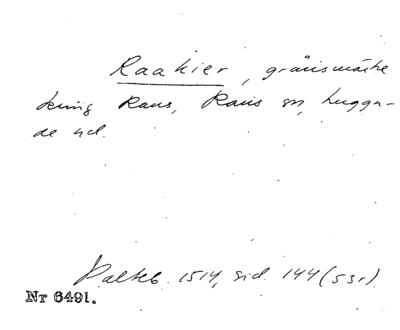 Raakier, gränsmärke
kring Raus, Raus sn, hugga-
de ud.
Palteb. 1514, sid. 144 (53r).
Nr 6491.